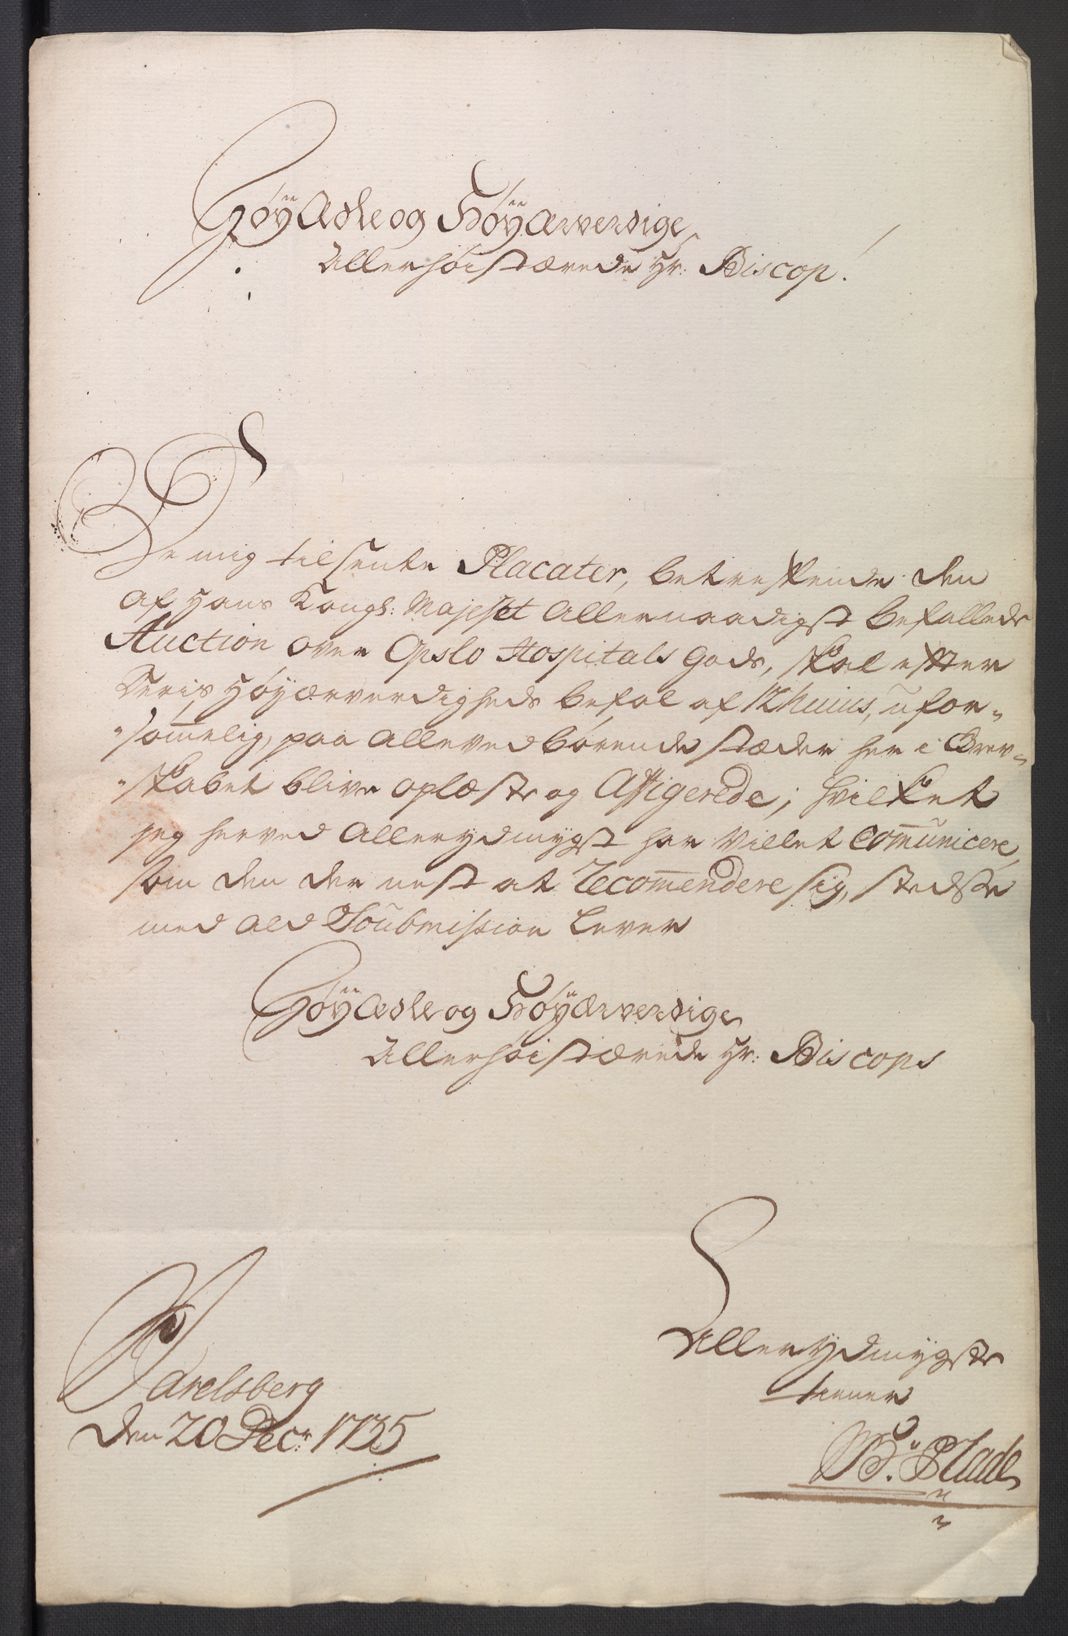 HøÿÆdle og Høÿærverdige
Allerhøistærede Hr: Biscop!
De mig tilsendte Placater, betreffende den
af Hans Kongl: Majestet Allernaadigst befallede
Auction over Opslo Hospitals Gods, skal efter
Deris Høÿærverdigheds befal af 12 hujus, ufor-
-sømmelig, paa Alleved børende stæder her i Grev-
-skabet blive oplæste og Affigerede; hvilket
jeg herved Allerydmygst har villet Comũnicere,
som den der nest at Recom̄endere sig, stedsse
med all Soubmission lever
HøÿÆdle og Høÿærverdige
Allerhøistærede Hr: Biscops
Jarlsberg
den 20 Decr 1735
Allerydmygste
tiener